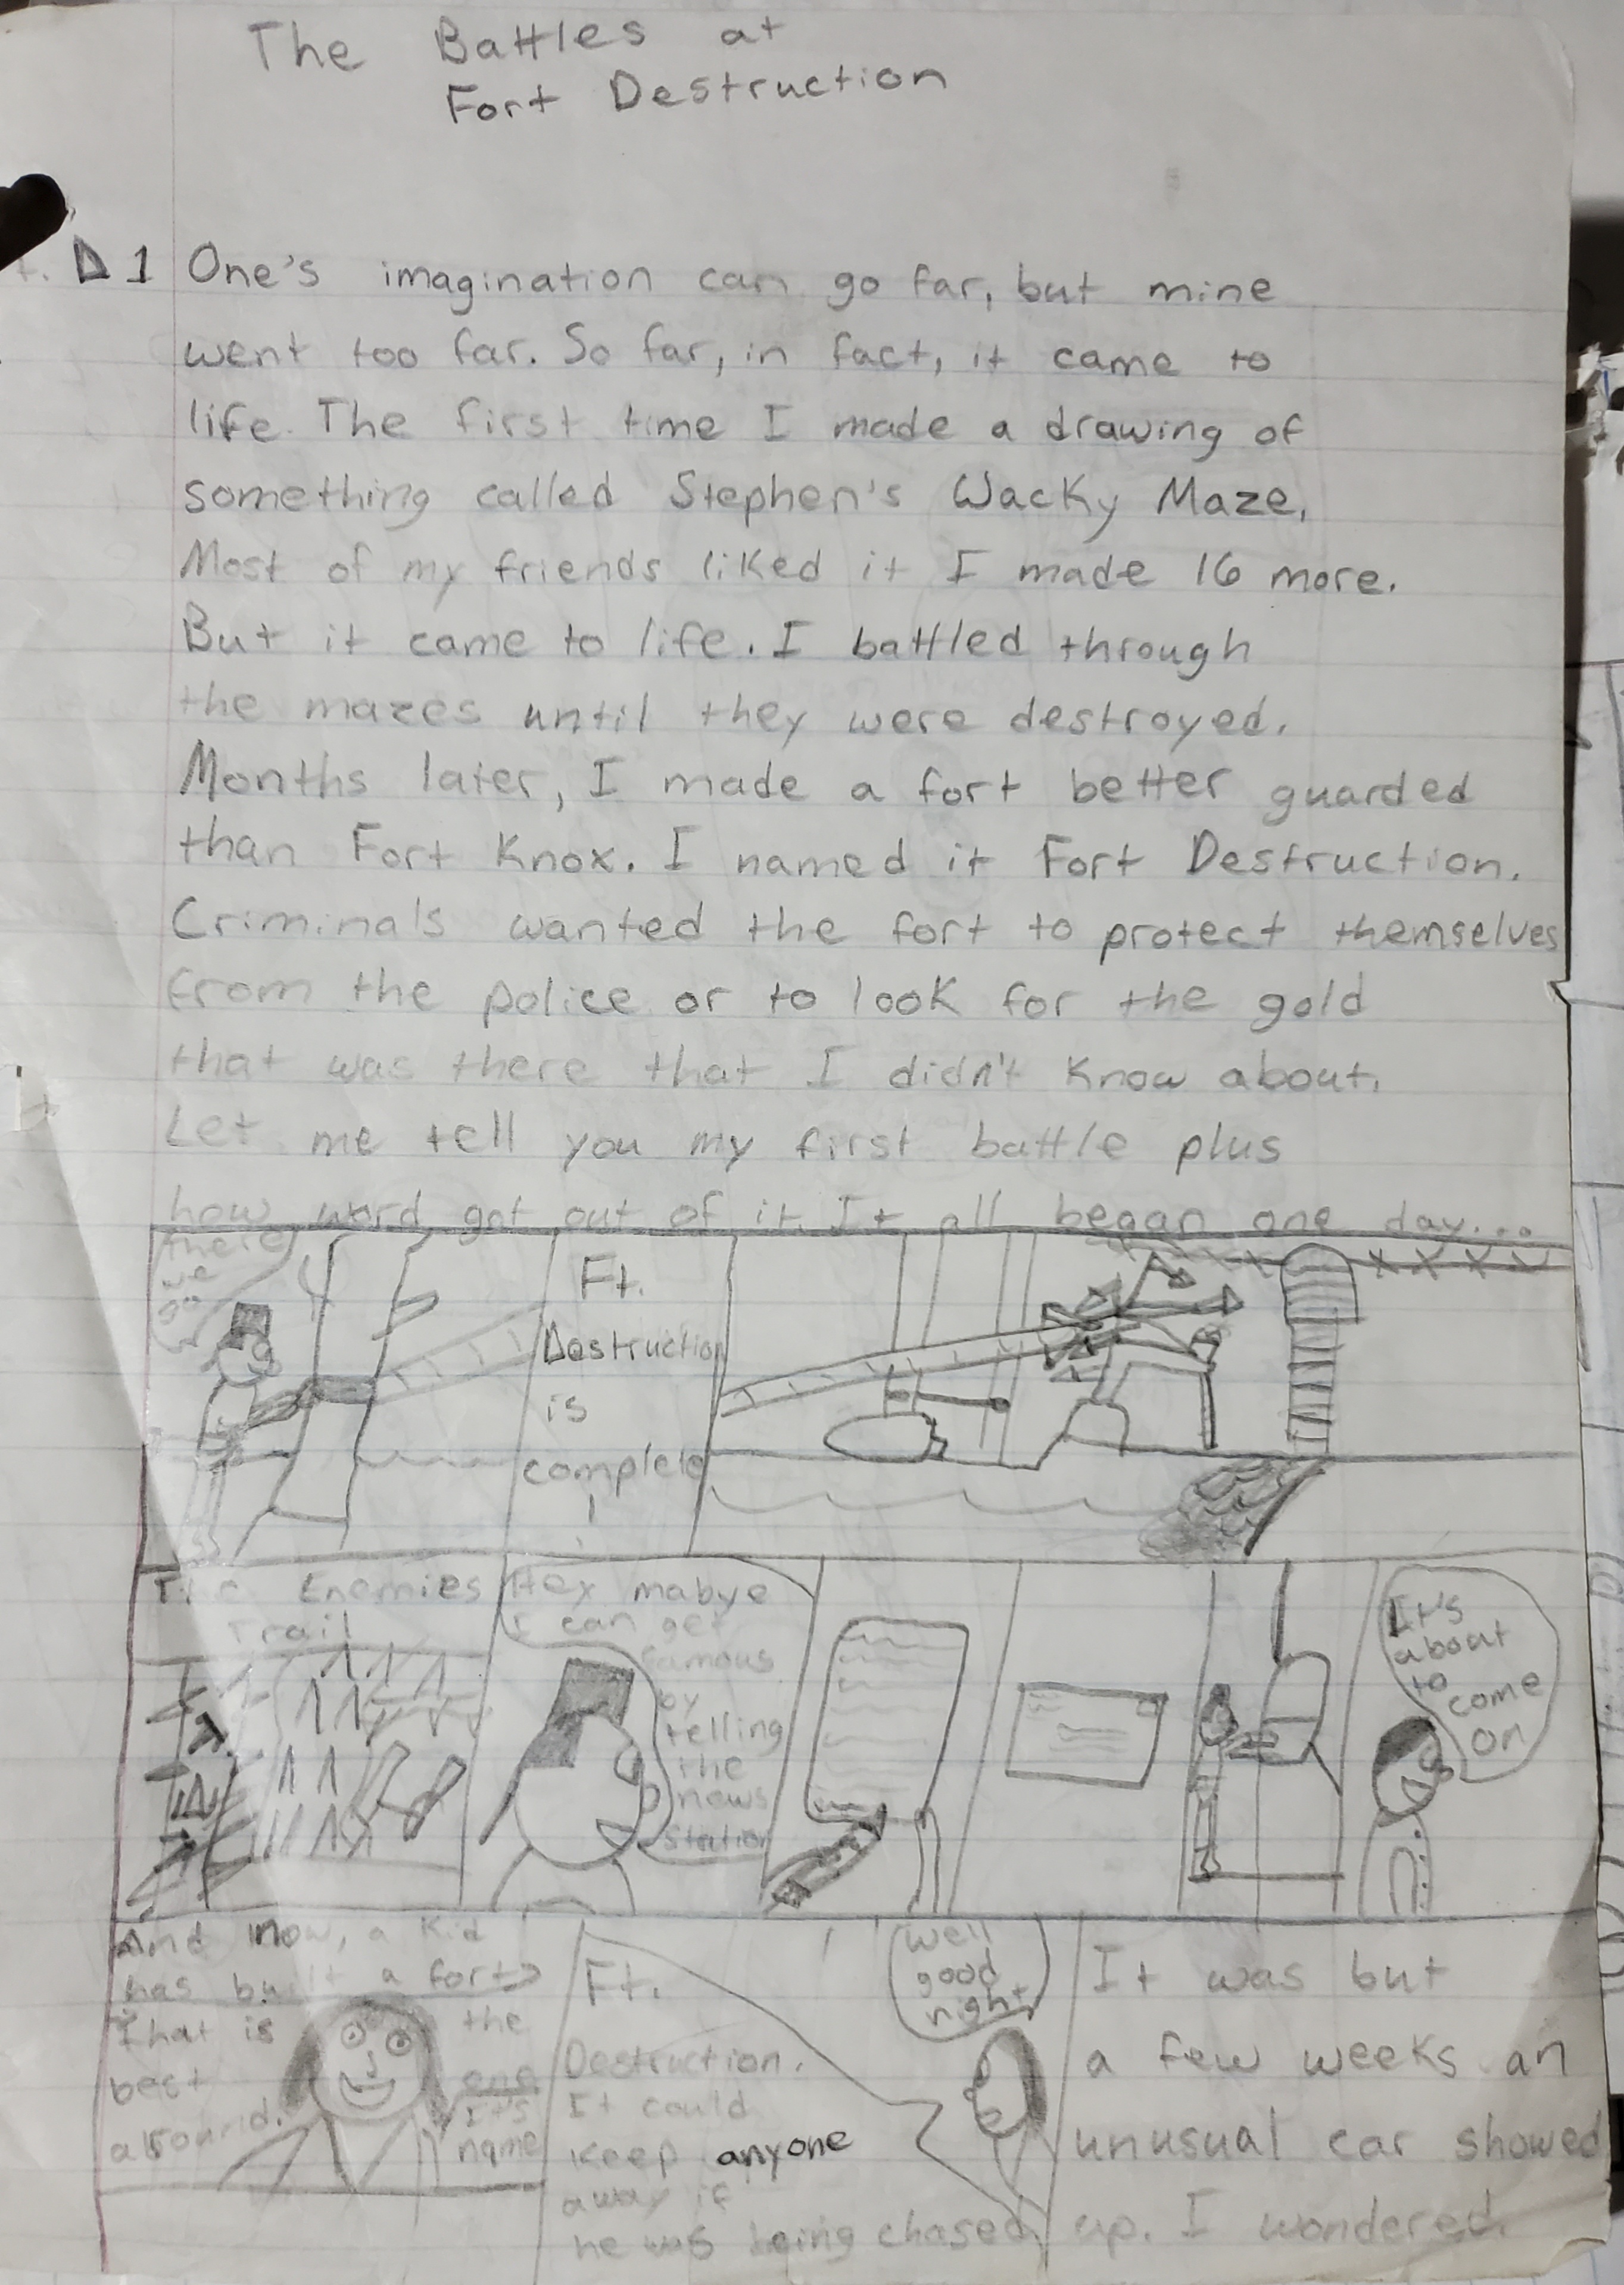 The Battles at
Fort Destruction
1 One's imagination can go far, but mine
went too far. So far, in fact, it came to
life. The first time I made a drawing of
something called Stephen's Wacky Maze.
Most of my friends liked it I made 16 more.
But it came to life. I battled through
the mazes until they were destroyed.
Months later, I made a fort better guarded
than Fort Knox. I named it Fort Destruction.
Criminals wanted the fort to protect themselves
from the police or to look for the gold
that was there that I didn't know about.
Let me tell you my first battle plus
how word got out of it. It all began one day...
there
we
go
Ft.
Destruction
is
complete
!
The Enemies
Trail
Hey mabye
I can get
famous
by
telling
the
news
station
It's
about
to
come
on
And now, a kid
has built a fort
that is the
best one
around. It's
name
Ft.
Destruction.
It could
keep anyone
away if
he was being chased
Well
good
night
It was but
a few weeks an
unusual car showed
up. I wondered